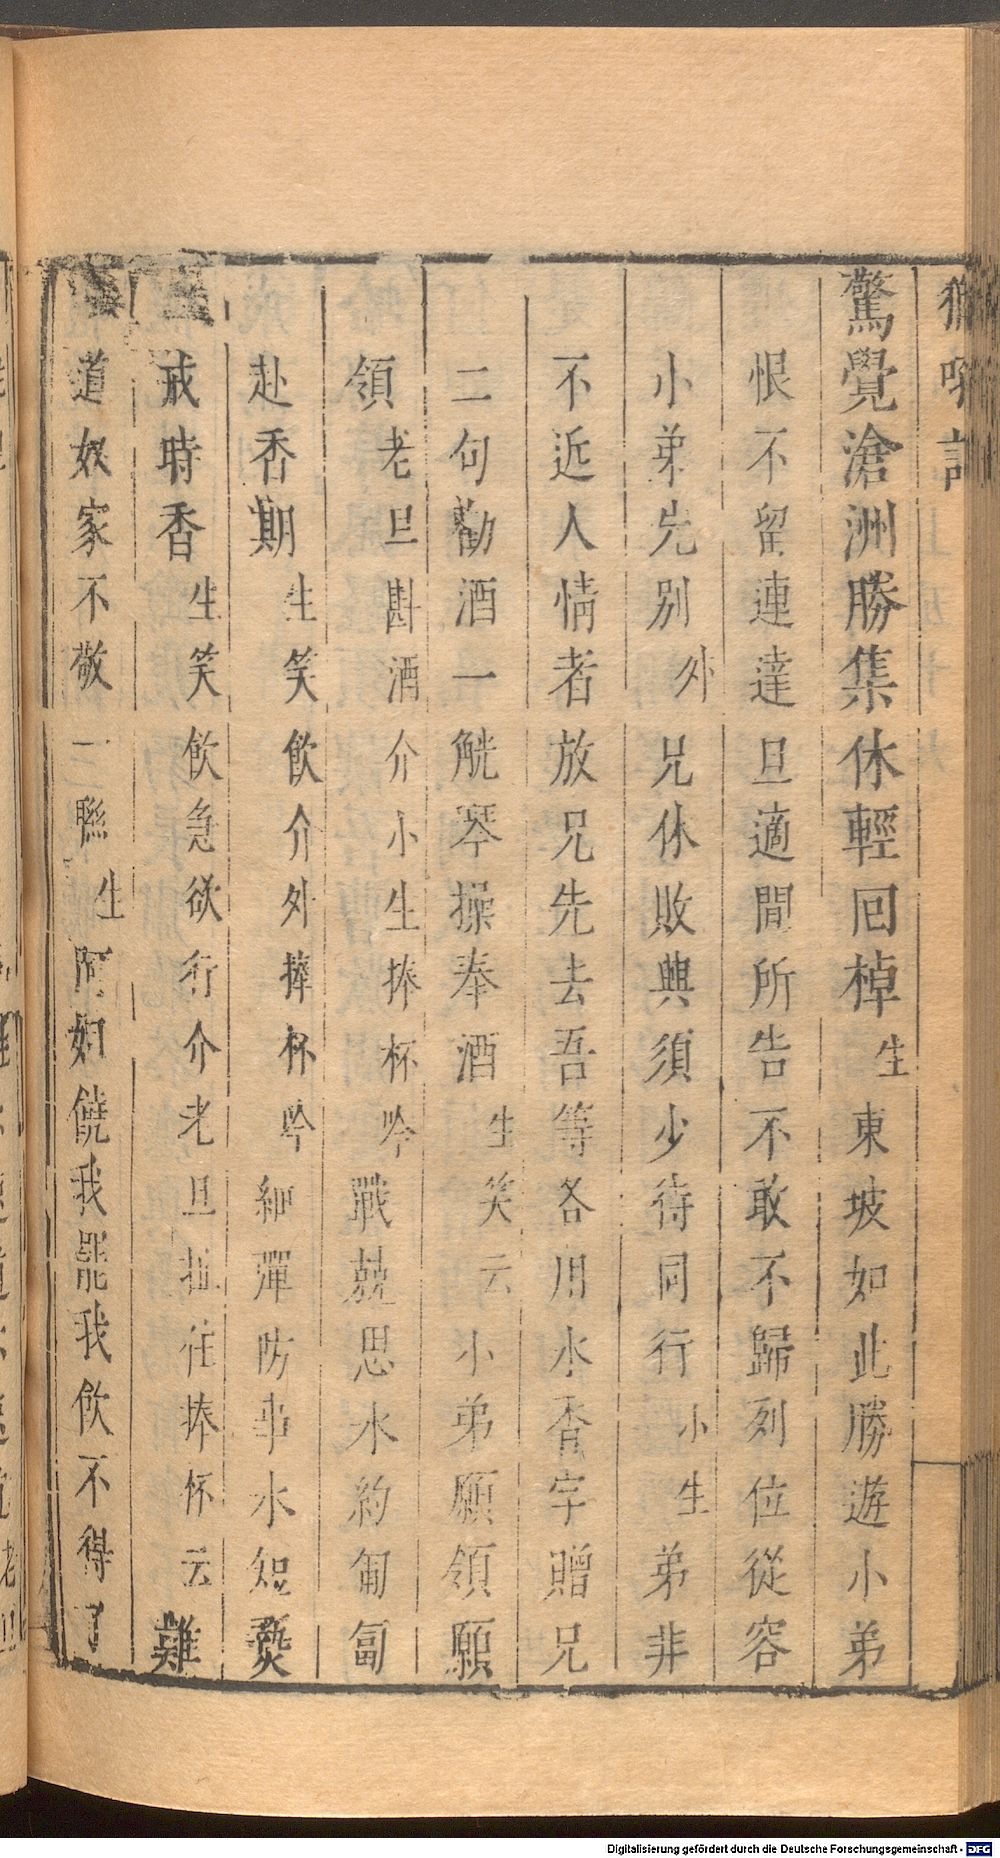 驚覺滄洲勝集休輕回棹生東坡如此勝遊小弟
恨不留連達旦適間所告不敢不歸列位從容
小弟先別外兄休敗興須少待同行小生弟非
不近人情者放兄先去吾等各用水香字贈兄
二句勸酒一觥琴操奉酒生笑云小弟願領願
領老旦斟酒介小生捧杯吟戰兢思水約匍匐
赴香期生笑飲介外捧杯吟細彈防事水短爇
戒時香生笑飲急欲行介老旦扯住捧杯云難
道奴家不敬一聯生阿姐饒我罷我飲不得了
Digitalisierung gefördert durch die Deutsche Forschungsgemeinschaft - DFG